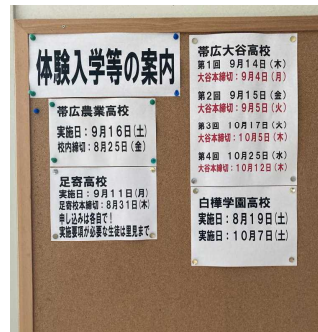 体験入学等の案内
帯広農業高校
実施日：9月16日(土)
校内締切：8月25日(金)
足寄高校
実施日：9月11日(月)
足寄校本締切：8月31日(木)
申し込みは各自で！
実施要項が必要な生徒は里見まで
帯広大谷高校
第1回 9月14日(木)
大谷本締切：9月4日(月)
第2回 9月15日(金)
大谷本締切：9月5日(火)
第3回 10月17日(火)
大谷本締切：10月5日(木)
第4回 10月25日(水)
大谷本締切：10月12日(木)
白樺学園高校
実施日：8月19日(土)
実施日：10月7日(土)